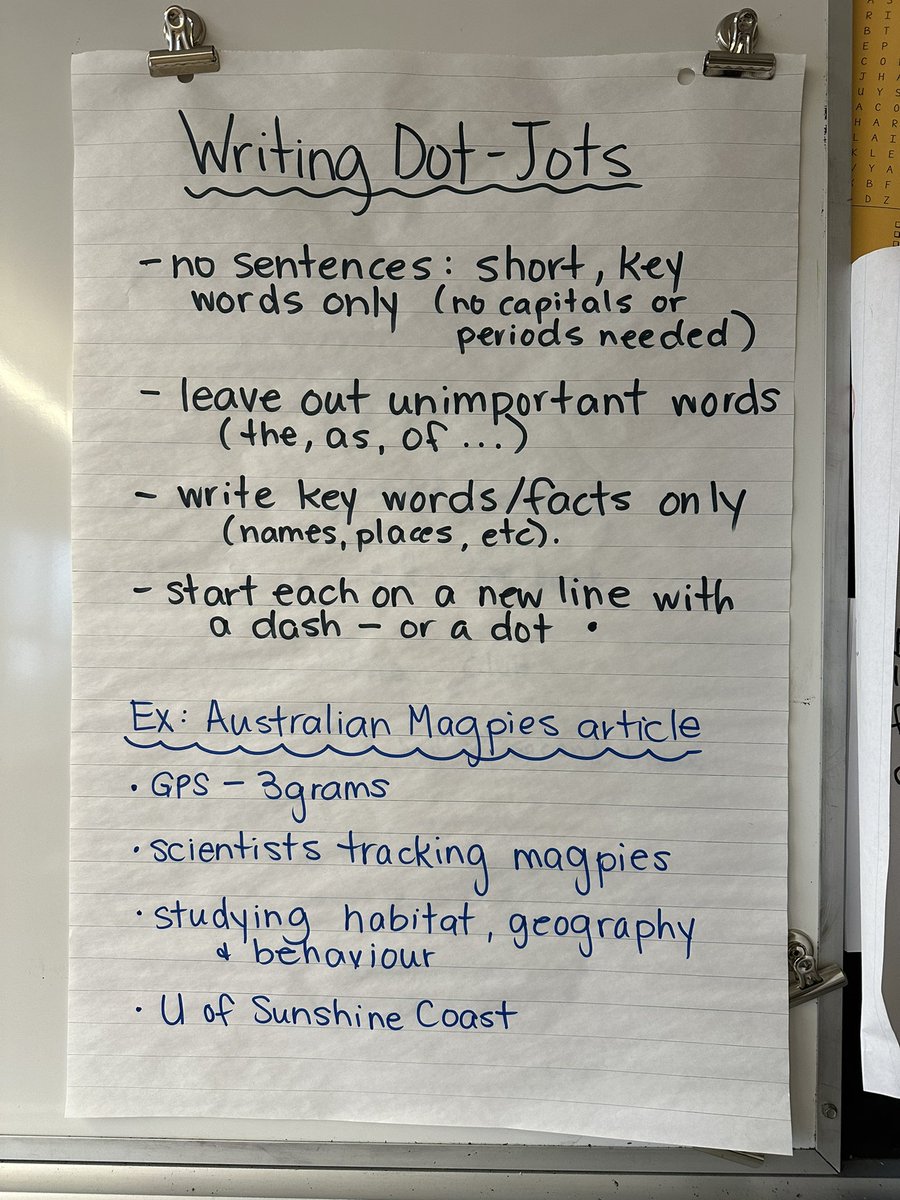 Writing Dot-Jots
- no sentences: short, key
words only (no capitals or
periods needed)
- leave out unimportant words
(the, as, of ...)
- write key words/facts only
(names, places, etc).
- start each on a new line with
a dash - or a dot •
Ex: Australian Magpies article
• GPS - 3grams
• scientists tracking magpies
• studying habitat, geography
& behaviour
• U of Sunshine Coast